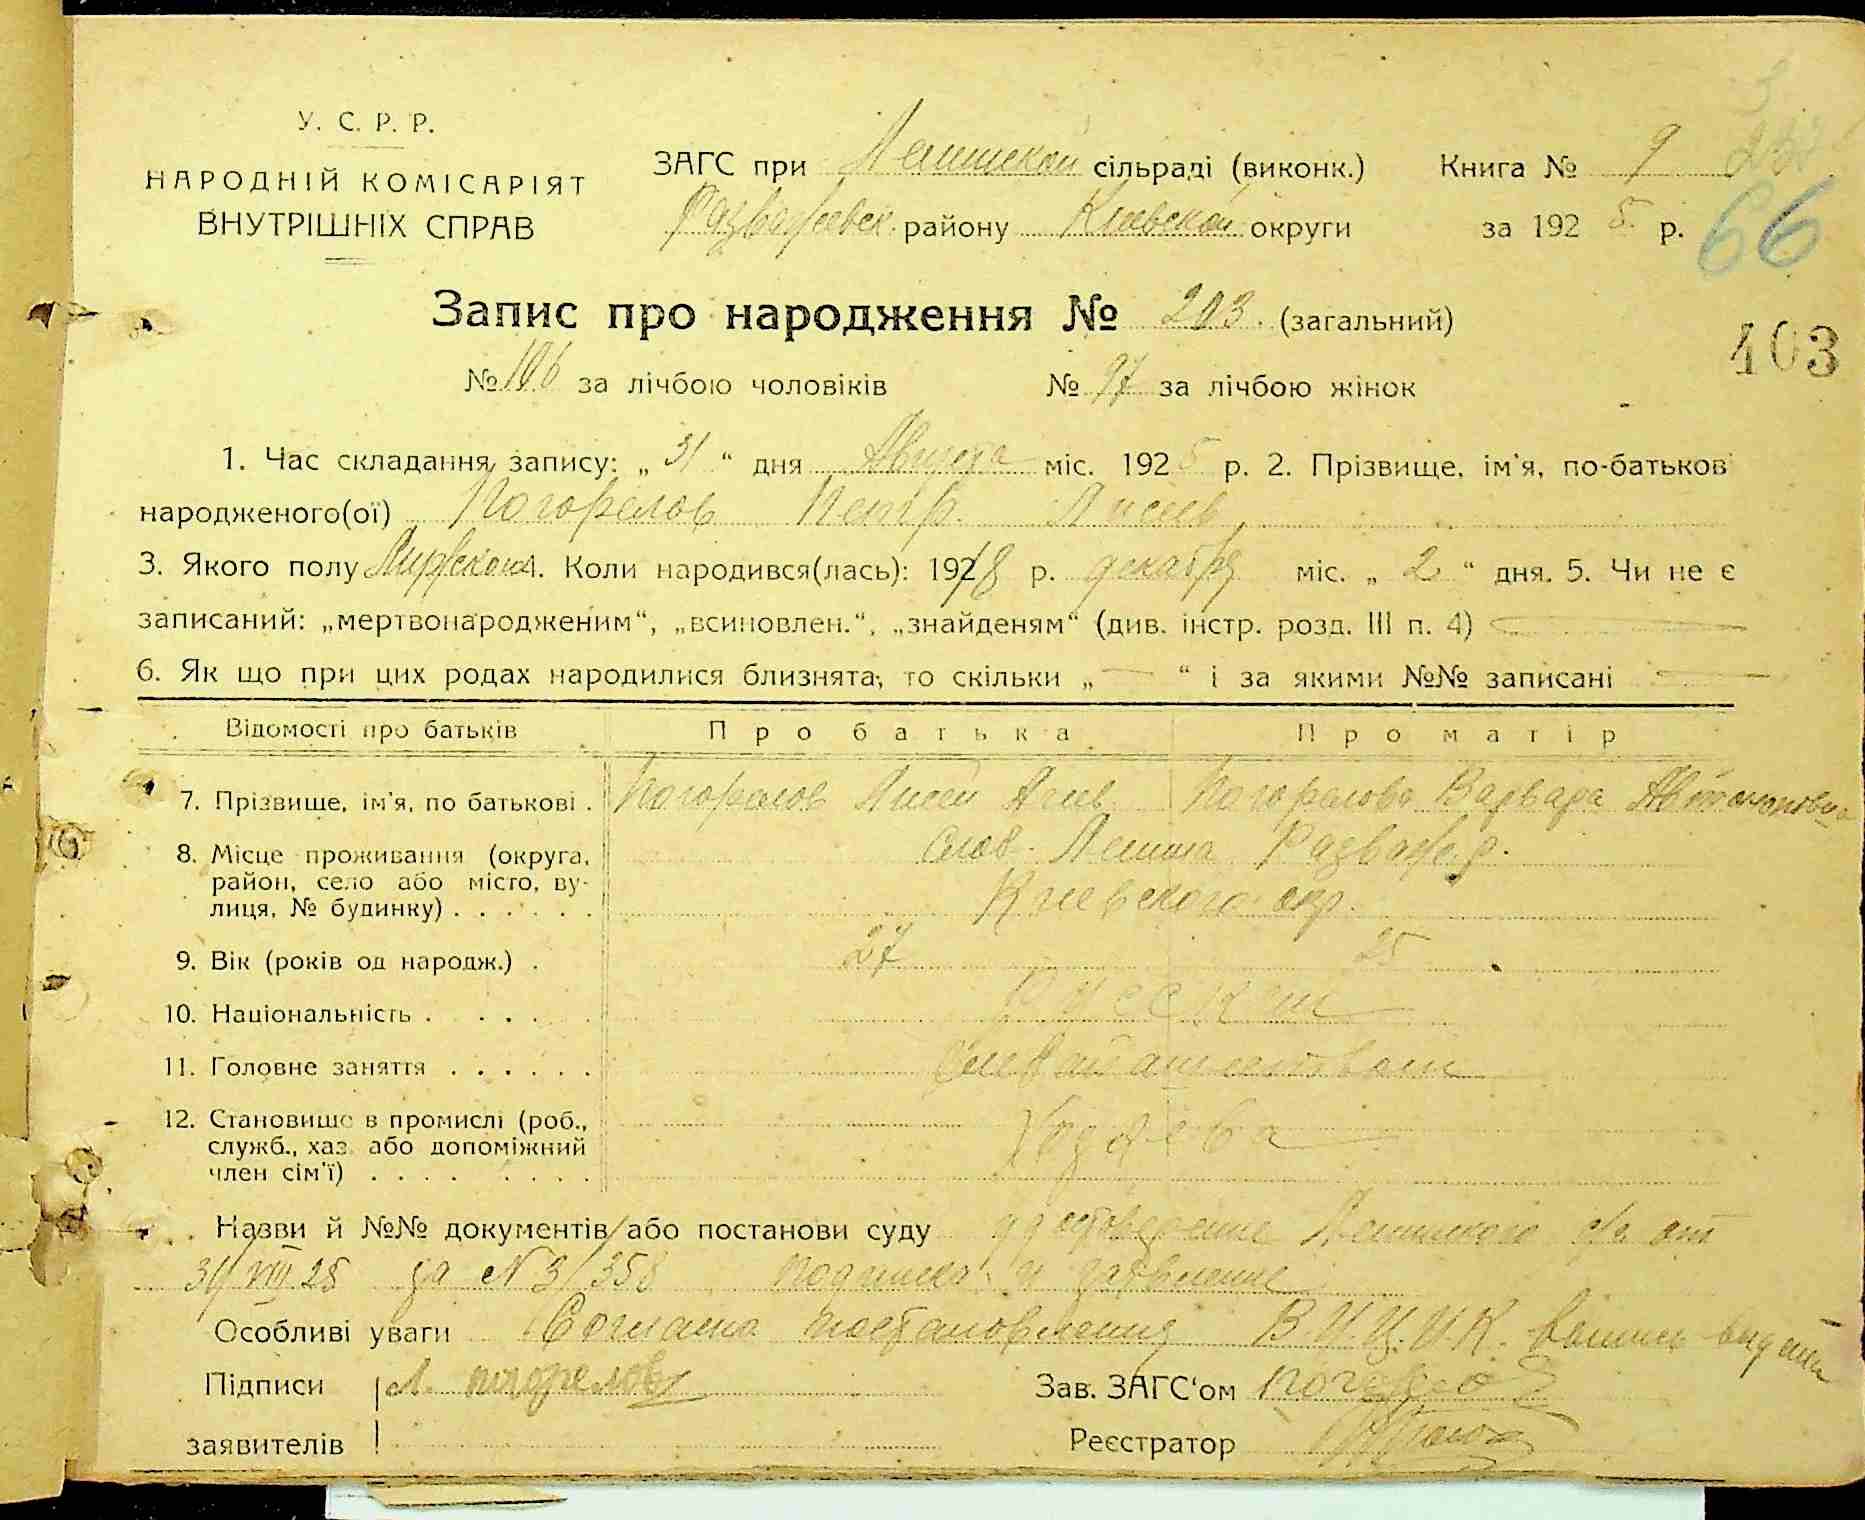 У. С. Р. Р.
НАРОДНІЙ КОМІСАРІЯТ
ВНУТРІШНІХ СПРАВ
ЗАГС при сільраді (виконк.) Книга № 9
району Киевской округи за 192 5 р.
66
Запис про народження № 203. (загальний)
403
№ 106 за лічбою чоловіків № 97 за лічбою жінок
1. Час складання запису: „ 31 “ дня Августа міс. 192 5 р. 2. Прізвище, ім'я, по-батькові
народженого(ої) Погорелов Петр.
3. Якого полу Мужского 4. Коли народився(лась): 1918 р. декабря міс. „ 2 “ дня. 5. Чи не є
записаний: „мертвонародженим“, „всиновлен.“, „знайденям“ (див. інстр. розд. III п. 4)
6. Як що при цих родах народилися близнята, то скільки „ — “ і за якими №№ записані —
Відомості про батьків Про батька Про матір
7. Прізвище, ім'я, по батькові . Погорелов Погорелова Варвара Автономовна
8. Місце проживання (округа,
район, село або місто, ву-
лиця, № будинку) . . . . . .
Киевского окр.
9. Вік (років од народж.) . 27 25
10. Національність . . . . . Русские
11. Головне заняття . . . . . .
12. Становище в промислі (роб.,
служб., хаз. або допоміжний
член сім'ї) . . . . . . . .
Назви й №№ документів або постанови суду удостоверение с/с от
31/VIII 25 за № 3/358 подписка и заявление
Особливі уваги Согласно постановления В.У.Ц.И.К.
Підписи Л. погорелов Зав. ЗАГС'ом
заявителів Реєстратор